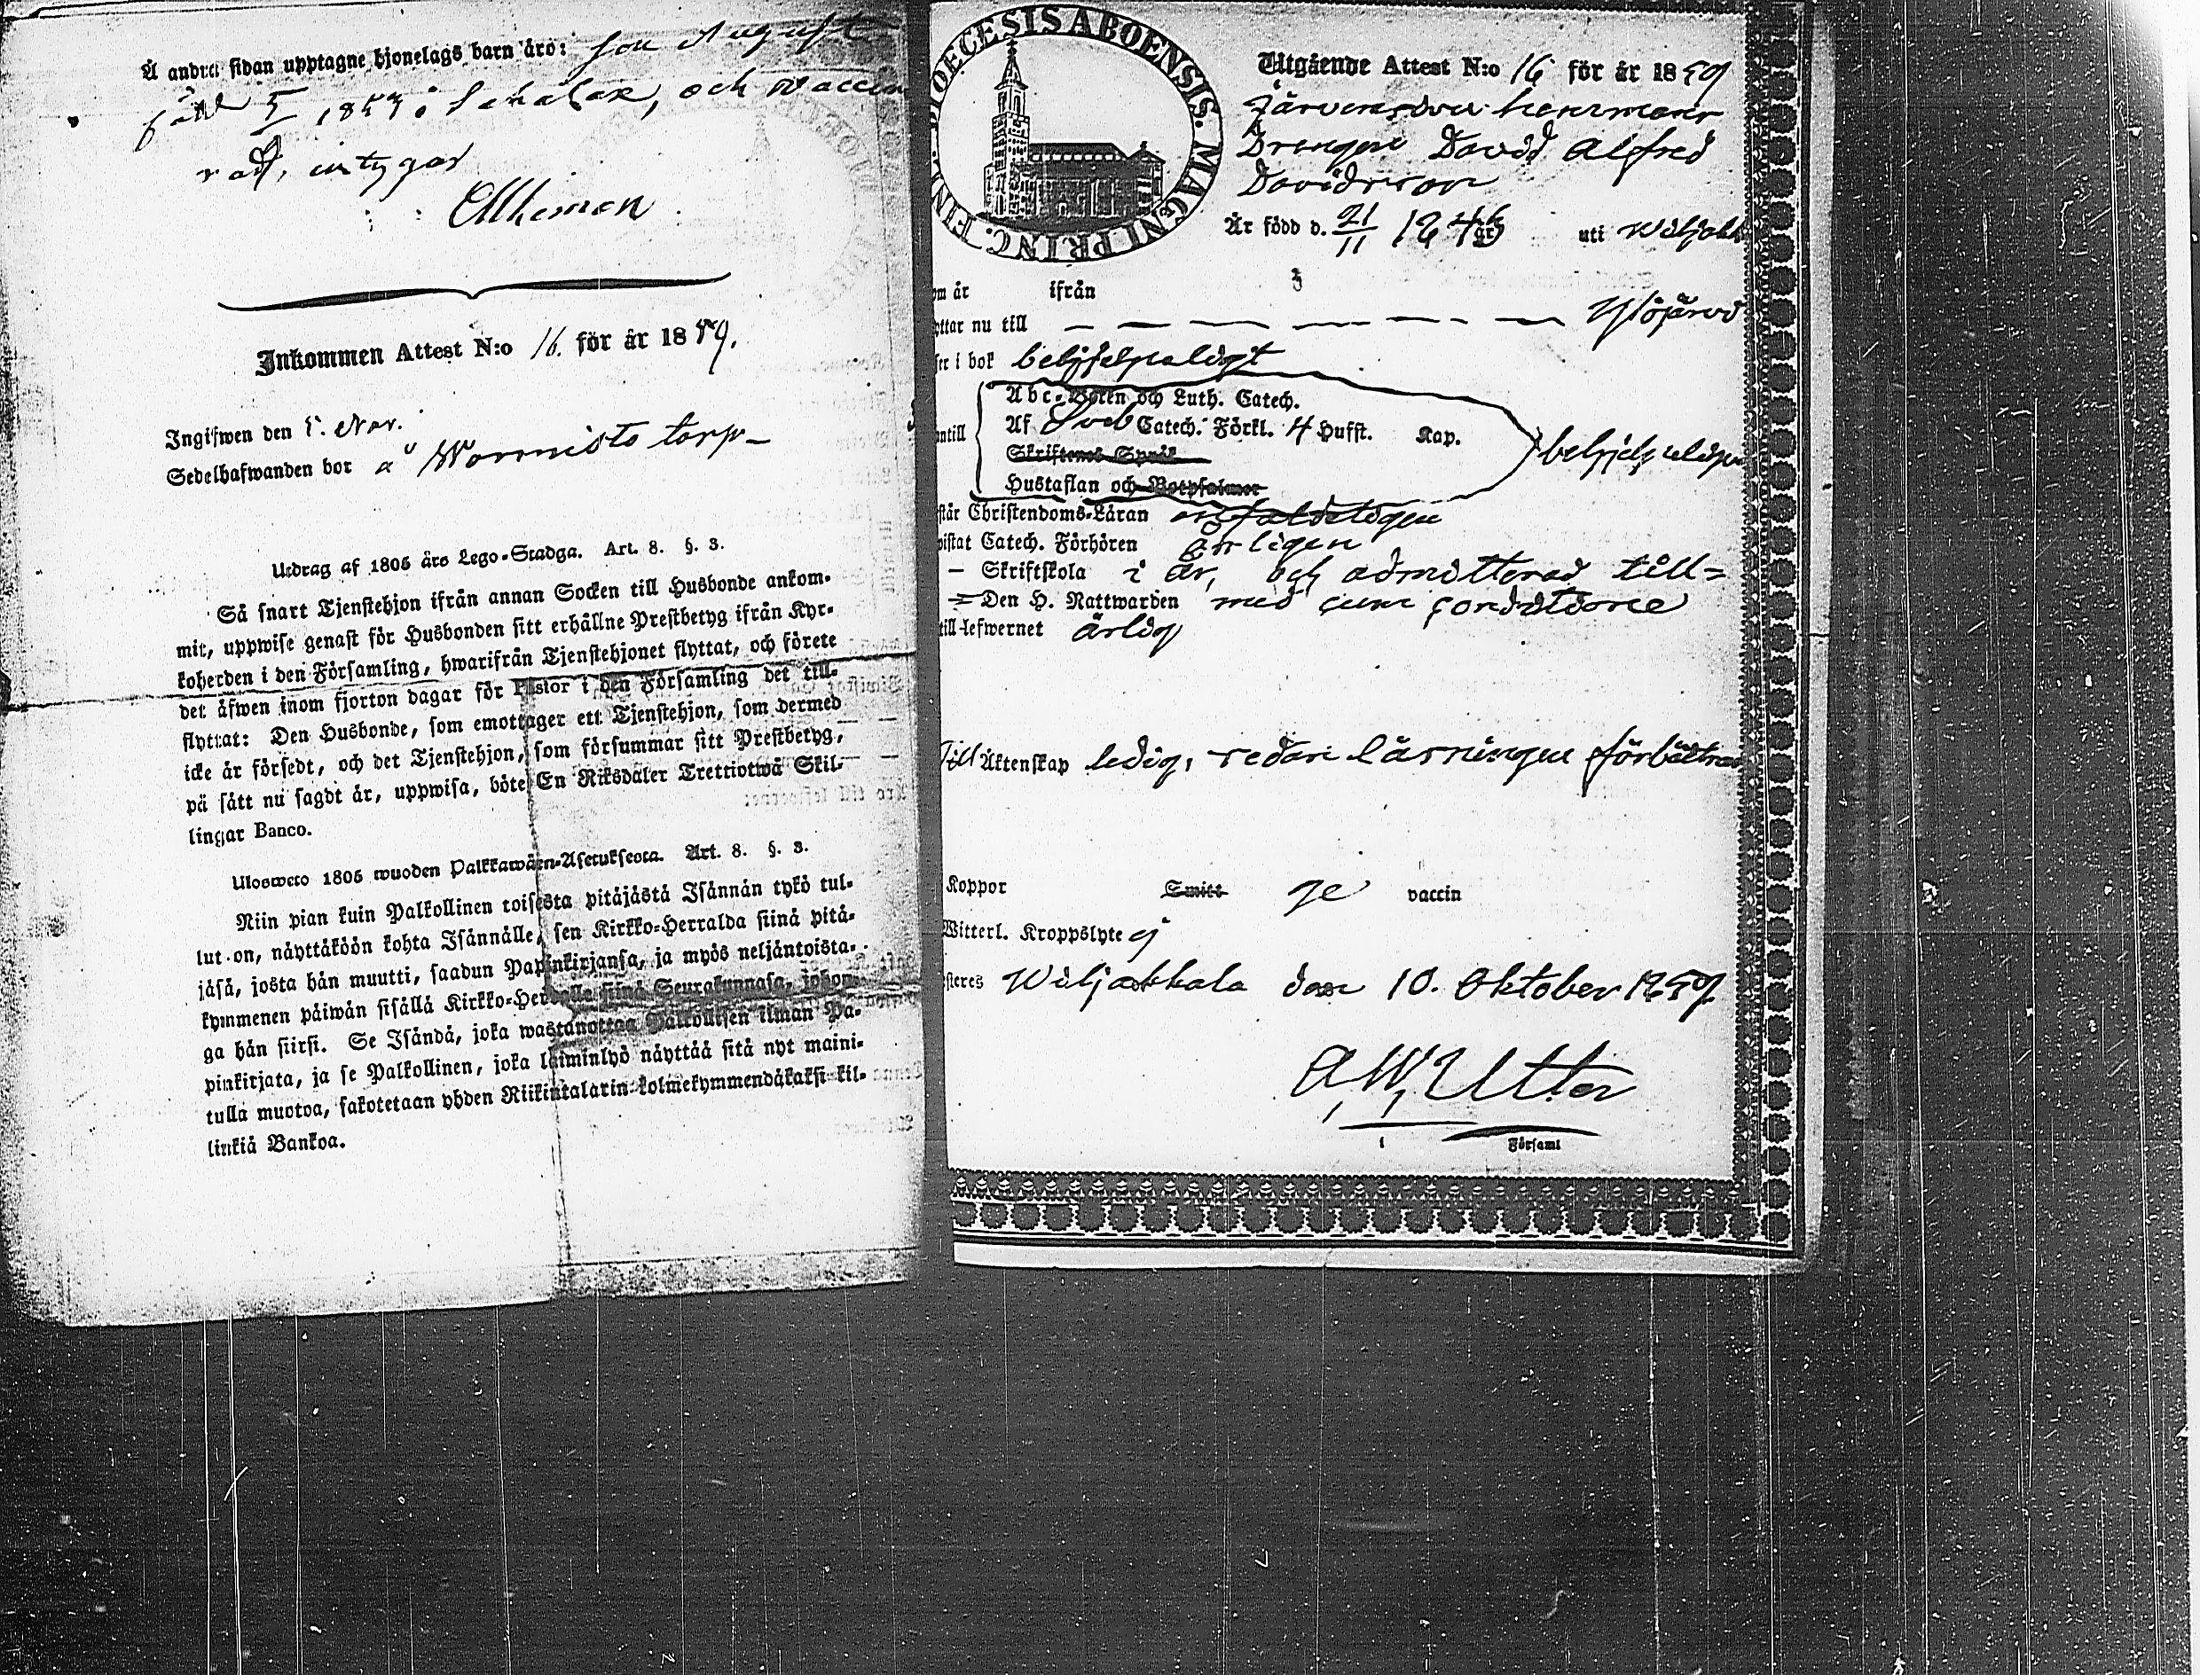 Å andra sidan upptagne hjonelags barn äro: son August
född 5/ 185 i och vaccine
rad, intygar
Inkommen Attest N:o 16. för år 1859.
Ingifwen den 5. Nov.
Sedelhafwanden bor å Wormisto torp
Utdrag af 1805 års Lego-Stadga. Art. 8. §. 3.
Så snart Tjenstehjon ifrån annan Socken till Husbonde ankom-
mit, uppwise genast för Husbonden sitt erhållne Prestbetyg ifrån Kyr-
koherden i den Församling, hwarifrån Tjenstehjonet flyttat, och förete
det äfwen inom fjorton dagar för Pastor i den Församling det till-
flyttat: Den Husbonde, som emottager ett Tjenstehjon, som dermed
icke är försedt, och det Tjenstehjon, som försummar sitt Prestbetyg,
på sätt nu sagdt är, uppwisa, böte En Riksdaler Trettiotwå Skil-
lingar Banco.
Ulosweto 1805 wuoden Palkkawäen-Asetuksesta. Art. 8. §. 3.
Niin pian kuin Palkollinen toisesta pitäjästä Isännän tykö tul-
lut on, näyttäköön kohta Isännälle, sen Kirkko-Herralda siinä pitä-
jäsä, josta hän muutti, saadun Papinkirjansa, ja myös neljäntoista-
kymmenen päiwän sisällä Kirkko-Herralle siinä Seurakunnasa, johon-
ga hän siirsi. Se Isändä, joka wastanottaa Palkollisen ilman Pa-
pinkirjata, ja se Palkollinen, joka laiminlyö näyttää sitä nyt maini-
tulla muotoa, sakotetaan yhden Riikintalarin kolmekymmendäkaksi kil-
linkiä Bankoa.
DIOECESIS ABOENSIS. MAGNI PRINC. FINL.
Utgående Attest N:o 16 för år 1859
Drengen David Alfred
Davidsson
Är född d. 21/11 184 uti Wiljakk
om år ifrån
yttar nu till Ylöjärvi
ser i bok behjelpeligt
Abc-Boken och Luth. Catech.
antill Af Sveb Catech. Förkl. 4 Hufst. Kap. behjelpeligen
Skriftenes Språk
Hustaflan och Botpsalmer
står Christendoms-Läran enfaldeligen
wistat Catech. Förhören årligen
— Skriftskola i år, och admitterad till=
= Den H. Nattwarden med cum conditione
till lefwernet ärlig
Till Äktenskap ledig, sedan läsningen förbättras
Koppor Smitt ge vaccin
Witterl. Kroppslyte ej
steres Wiljakkala den 10. Oktober 1859.
A, W, Utter
i Församl